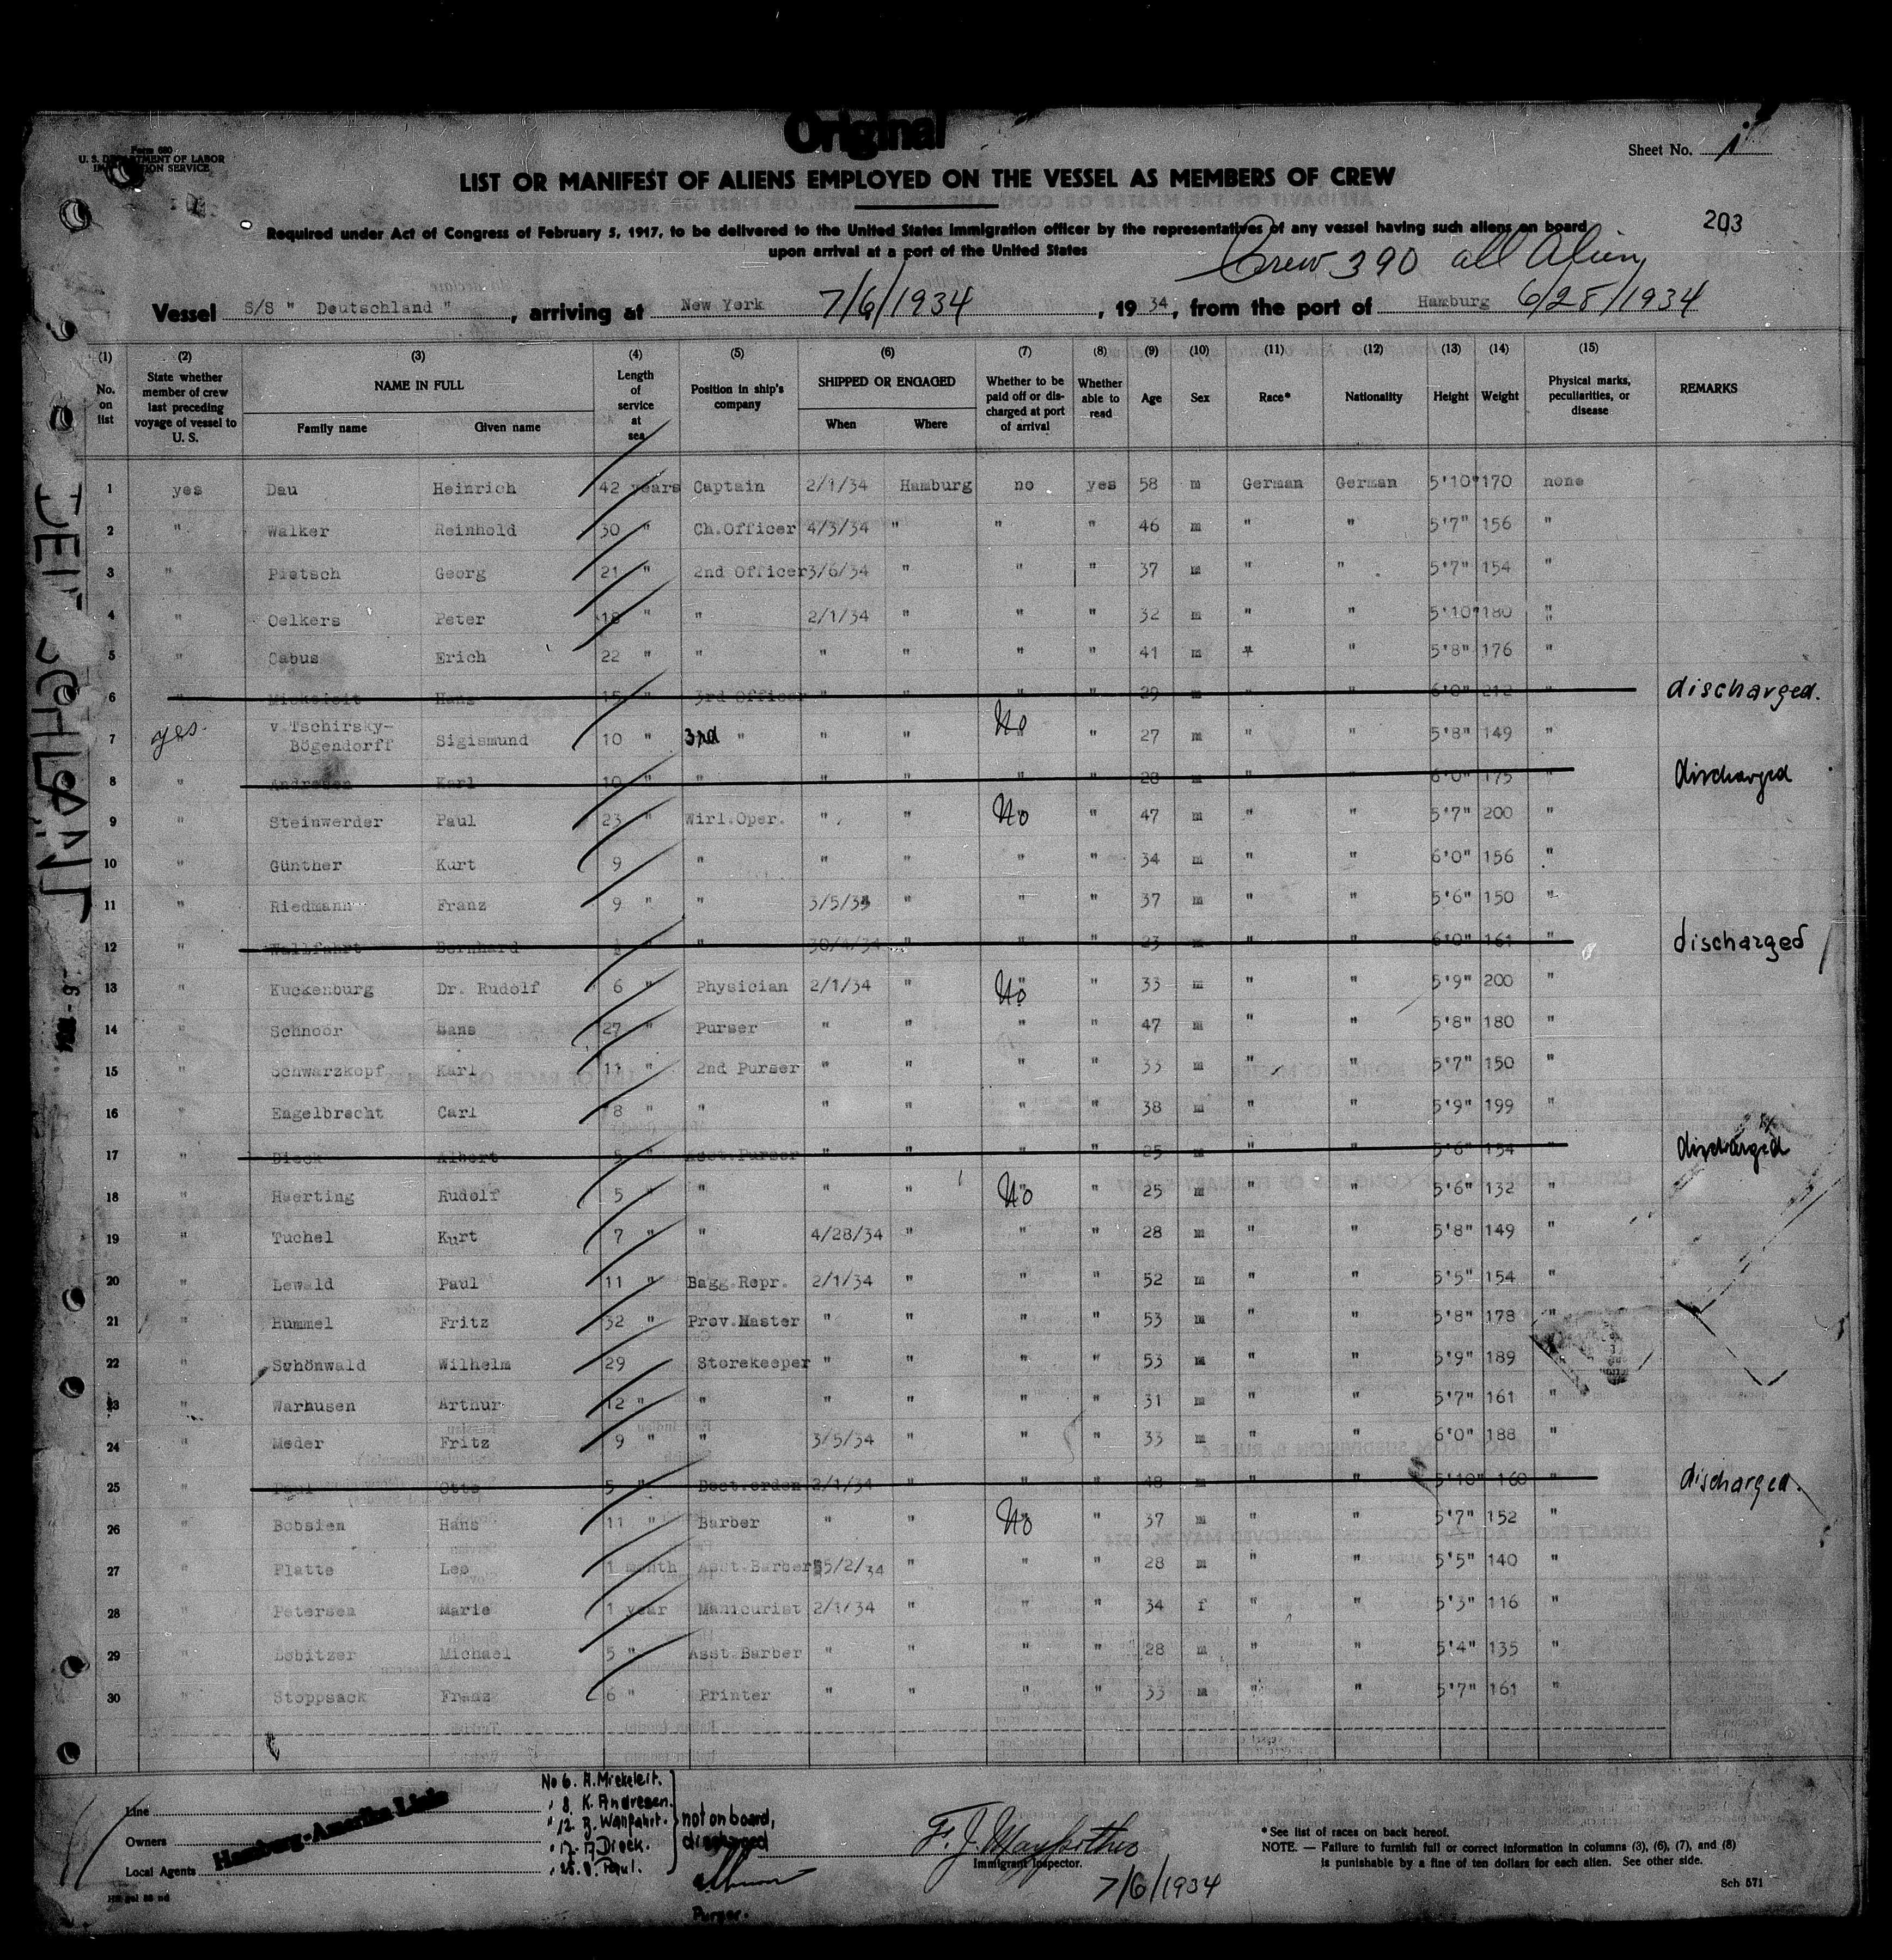 Original
Form 680
U. S. DEPARTMENT OF LABOR
IMMIGRATION SERVICE
Sheet No. 1
LIST OR MANIFEST OF ALIENS EMPLOYED ON THE VESSEL AS MEMBERS OF CREW
203
Required under Act of Congress of February 5, 1917, to be delivered to the United States immigration officer by the representatives of any vessel having such aliens on board
upon arrival at a port of the United States
Crew 390 all Alien
Vessel S/S " Deutschland ", arriving at New York 7/6/1934, 19 34, from the port of Hamburg 6/28/1934
(1) (2) (3) (4) (5) (6) (7) (8) (9) (10) (11) (12) (13) (14) (15)
No. on list
State whether member of crew last preceding voyage of vessel to U. S.
NAME IN FULL
Family name Given name
Length of service at sea
Position in ship's company
SHIPPED OR ENGAGED
When Where
Whether to be paid off or discharged at port of arrival
Whether able to read
Age Sex Race* Nationality Height Weight
Physical marks, peculiarities, or disease
REMARKS
1 yes Dau Heinrich 42 years Captain 2/1/34 Hamburg no yes 58 m German German 5'10" 170 none
2 " Walker Reinhold 30 " Ch.Officer 4/3/34 " " " 46 m " " 5'7" 156 "
3 " Pietsch Georg 21 " 2nd Officer 3/6/34 " " " 37 m " " 5'7" 154 "
4 " Oelkers Peter 18 " " 2/1/34 " " " 32 m " " 5'10" 180 "
5 " Cabus Erich 22 " " " " " " 41 m " " 5'8" 176 "
6 " Mickeleit Hans 15 " 3rd Officer " " " 29 m " " 6'0" 212 " discharged.
7 yes. v.Tschirsky-
Bögendorff Sigismund 10 " 3rd " " " No " 27 m " " 5'8" 149 "
8 " Andresen Karl 10 " " " " " 28 m " " 6'0" 175 " discharged
9 " Steinwerder Paul 23 " Wirl.Oper. " " No " 47 m " " 5'7" 200 "
10 " Günther Kurt 9 " " " " " 34 m " " 6'0" 156 "
11 " Riedmann Franz 9 " " 3/5/34 " " " 37 m " " 5'6" 150 "
12 " Wallfahrt Bernhard " " 30/4/34 " " 23 m " " 6'0" 161 " discharged
13 " Kuckenburg Dr. Rudolf 6 " Physician 2/1/34 " No " 33 m " " 5'9" 200 "
14 " Schnoor Hans 27 " Purser " " " " 47 m " " 5'8" 180 "
15 " Schwarzkopf Karl 11 " 2nd Purser " " " " 33 m " " 5'7" 150 "
16 " Engelbrecht Carl 8 " " " " " " 38 m " " 5'9" 199 "
17 " Dieck Albert 5 " Asst.Purser " " " 25 m " " 5'6" 154 " discharged
18 " Haerting Rudolf 5 " " " " No " 25 m " " 5'6" 132 "
19 " Tuchel Kurt 7 " " 4/28/34 " " " 28 m " " 5'8" 149 "
20 " Lewald Paul 11 " Bagg.Repr. 2/1/34 " " " 52 m " " 5'5" 154 "
21 " Hummel Fritz 32 " Prov.Master " " " " 53 m " " 5'8" 178 "
22 " Schönwald Wilhelm 29 Storekeeper " " " " 53 m " " 5'9" 189 "
23 " Warhusen Arthur 12 " " " " " " 31 m " " 5'7" 161 "
24 " Meder Fritz 9 " " 3/5/34 " " " 33 m " " 6'0" 188 "
25 " Paul Otto 5 " 2/1/34 " " 48 m " " 5'10" 160 " discharged.
26 " Bobsien Hans 11 " Barber " " No " 37 m " " 5'7" 152 "
27 " Platte Leo 1 month Asst.Barber 5/2/34 " " " 28 m " " 5'5" 140 "
28 " Petersen Marie 1 year Manicurist 2/1/34 " " " 34 f " " 5'3" 116 "
29 " Lobitzer Michael 5 " Asst.Barber " " " " 28 m " " 5'4" 135 "
30 " Stoppsack Franz 6 " Printer " " " " 33 m " " 5'7" 161 "
No 6. H. Mickeleit.
" 8. K. Andresen.
" 12. B. Wallfahrt.
" 17. A. Dieck.
" 25. O. Paul.
not on board,
discharged
Purser.
Line
Owners
Local Agents
Hamburg-Amerika Linie
Immigrant Inspector.
7/6/1934
* See list of races on back hereof.
NOTE. — Failure to furnish full or correct information in columns (3), (6), (7), and (8)
is punishable by a fine of ten dollars for each alien. See other side.
Sch 571